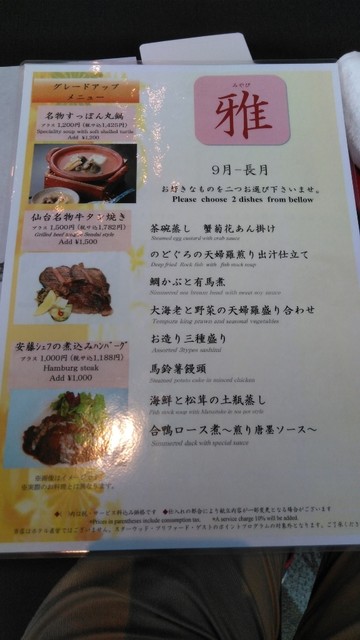 グレードアップ
メニュー
名物すっぽん丸鍋
プラス 1,200円 (税サ込1,425円)
Speciality soup with soft shelled turtle
Add ¥1,200
仙台名物牛タン焼き
プラス 1,500円 (税サ込1,782円)
Grilled beef tongue Sendai style
Add ¥1,500
安藤シェフの煮込みハンバーグ
プラス 1,000円 (税サ込1,188円)
Hamburg steak
Add ¥1,000
※画像はイメージです。
※実際のお料理とは異なります。
みやび
雅
9月-長月
お好きなものを二つお選び下さいませ。
Please choose 2 dishes from bellow
茶碗蒸し 蟹菊花あん掛け
Steamed egg custard with crab sauce
のどぐろの天婦羅煎り出汁仕立て
Deep fried Rock fish with fish stock soup
鯛かぶと有馬煮
Simmered sea bream head with sweet soy sauce
大海老と野菜の天婦羅盛り合わせ
Tempura king prawn and seasonal vegetables
お造り三種盛り
Assorted 3types sashimi
馬鈴薯饅頭
Steamed potato cake in minced chicken
海鮮と松茸の土瓶蒸し
Fish stock soup with Matsutake in tea pot style
合鴨ロース煮~煎り唐墨ソース~
Simmered duck with special sauce
◆( )内は税・サービス料込み価格です ◆仕入れの都合により献立内容が一部変更となる場合がございます
*Prices in parentheses include consumption tax. *A service charge 10% will be added.